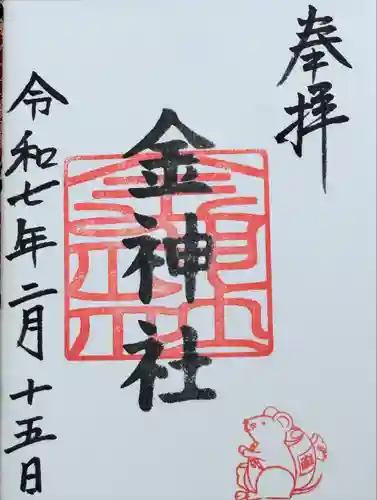 奉拝
金神社
令和七年二月十五日